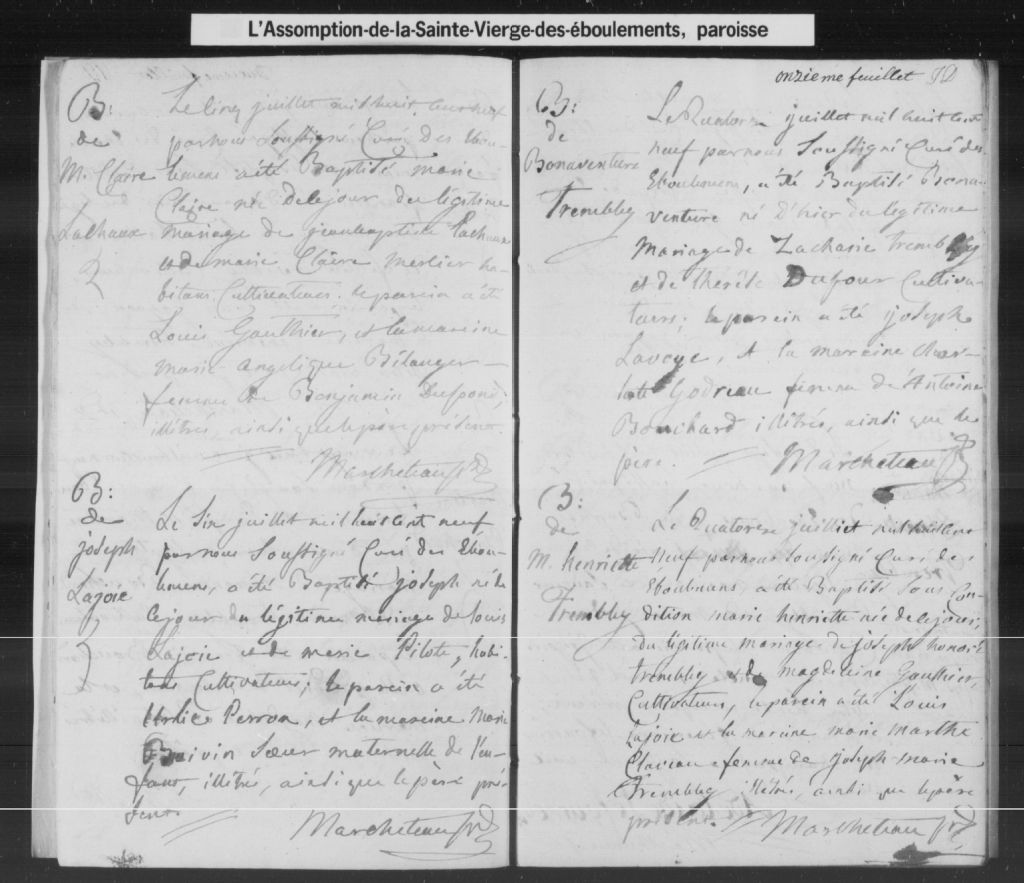 L'Assomption-de-la-Sainte-Vierge-des-éboulements, paroisse
B:
de
M. Claire
Lachaux
Le cinq juillet mil huit cent neuf
par nous Soussigné Curé Des Ebou-
lemens a été Baptisé marie
Claire née De ce jour du légitime
mariage de jean baptiste Lachaux
et de marie Claire Merlier ha-
bitans Cultivateurs. le parein a été
Louis Gauthier, et la mareine
marie angelique Bélanger
femme de Benjamin
illitrés, ainsi que le père présent.
Marcheteau ptr
B:
de
joseph
Lajoie
Le Six juillet mil huit Cent neuf
par nous Soussigné Curé des Ebou-
lemens, a été Baptisé joseph né de
ce jour du légitime mariage de louis
Lajoie et de marie Pilote, habi-
tans Cultivateurs, le parein a été
Perron, et la mareine Marie
Boivin Sœur maternelle de l'en-
fant, illitrés, ainsi que le père pré-
sent.
Marcheteau ptr
onzieme feuillet
B:
de
Bonaventure
Trembley
Le Quatorze juillet mil huit Cent
neuf par nous Soussigné Curé des
Eboulemens, a été Baptisé Bona-
venture né D'hier du légitime
Mariage de Zacharie Trembley
et de therése Dufour Cultiva-
teurs; le parein a été joseph
Lavoye, et la mareine Char-
lotte Godreau femme de Antoine
Bouchard illitrés, ainsi que le
père.
Marcheteau ptr
B:
de
M. henriette
Trembley
Le Quatorze juillet mil huit Cent
Neuf par nous Soussigné Curé de
Eboulemens a été Baptisé Sous Con-
dition marie henriette née de ce jour,
du légitime mariage de joseph honoré
trembley et de magdeleine Gauthier,
Cultivateurs, le parein a été Louis
Lajoie et la mareine marie marthe
femme de joseph-marie
Trembley illitrés, ainsi que le père
présent.
Marcheteau ptr